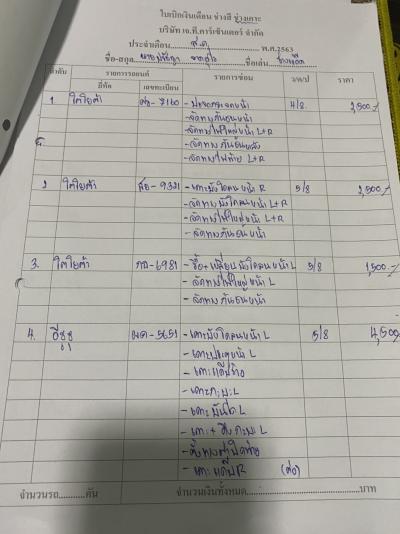 ใบเบิกเงินเดือน ช่างสี ช่างเคาะ
บริษัท เอ.ที.คาร์เซ็นเตอร์ จำกัด
ประจำเดือน ส.ค. พ.ศ.2563
ชื่อ-สกุล ชื่อเล่น
ลำดับ รายการรถยนต์ รายการซ่อม ว/ด/ป ราคา
ยี่ห้อ เลขทะเบียน
1. โตโยต้า 7160 4/8 2,500.-
- จัดทางกันชนหน้า
- จัดทางไฟใหญ่หน้า L+R
- จัดทางกันชนหลัง
- จัดทางไฟท้าย L+R
2 โตโยต้า 9321 - เคาะบังโคลนหน้า R 5/8 2,500.-
- จัดทางบังโคลนหน้า L+R
- จัดทางไฟใหญ่หน้า L+R
- จัดทางกันชนหน้า
3. โตโยต้า 6981 - รื้อ+เปลี่ยนบังโคลนหน้า L 5/8 1,500.-
- จัดทางไฟใหญ่หน้า L
- จัดทางกันชนหน้า
4. อีซูซุ 5651 - เคาะบังโคลนหน้า L 5/8 4,500
- เคาะประตูหน้า L
- เคาะแค๊ปซ้าย
- เคาะกะบะ L
- เคาะบันได L
- เคาะ + ดึงกะบะ L
- เคาะแค๊ป R (ต่อ)
จำนวนรถ..........คัน จำนวนเงินทั้งหมด..............................บาท